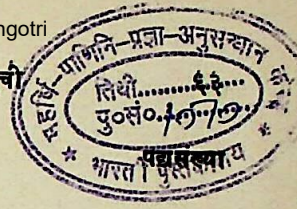 ngotri
ची
महर्षि-पाणिनि-प्रज्ञा-अनुसन्धान
तिथी
पु०सं०
भारती पुस्तकालय
पद्यसंख्या